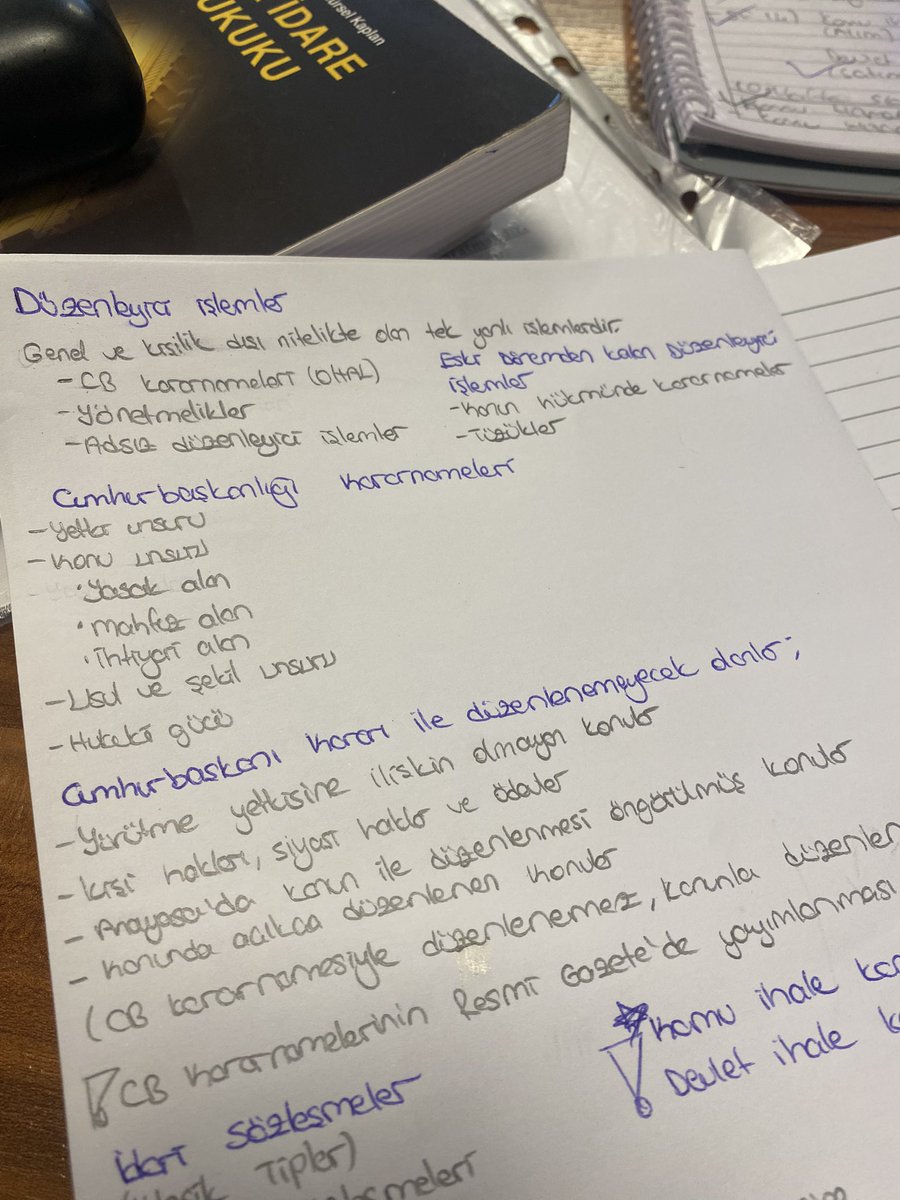 ürsel Kaplan
İDARE
UKUKU
Düzenleyici işlemler
Genel ve kişilik dışı nitelikte olan tek yanlı işlemlerdir.
- CB kararnameleri (OHAL)
- Yönetmelikler
- Adsız düzenleyici işlemler
Eski Dönemden kalan Düzenleyici
işlemler
- Kanun hükmünde kararnameler
- Tüzükler
Cumhurbaşkanlığı kararnameleri
- Yetki unsuru
- Konu unsuru
• Yasak alan
• mahfuz alan
• ihtiyari alan
- Usul ve şekil unsuru
- Hukuki gücü
Cumhurbaşkanı kararı ile düzenlenemeyecek olanlar;
- Yürütme yetkisine ilişkin olmayan konular
- Kişi hakları, siyasi haklar ve ödevler
- Anayasa'da kanun ile düzenlenmesi öngörülmüş konular
- Kanunda açıkca düzenlenen konular
(CB kararnamesiyle düzenlenemez, kanunla düzenlen
CB kararnamelerinin Resmi Gazete'de yayımlanması
Kamu ihale kan
Devlet ihale k
İdari Sözleşmeler
Tipler)